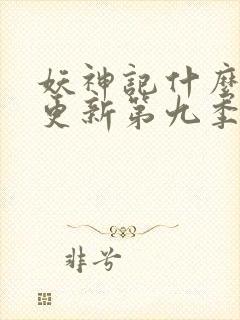 妖神記什麼
更新第九季
非兮